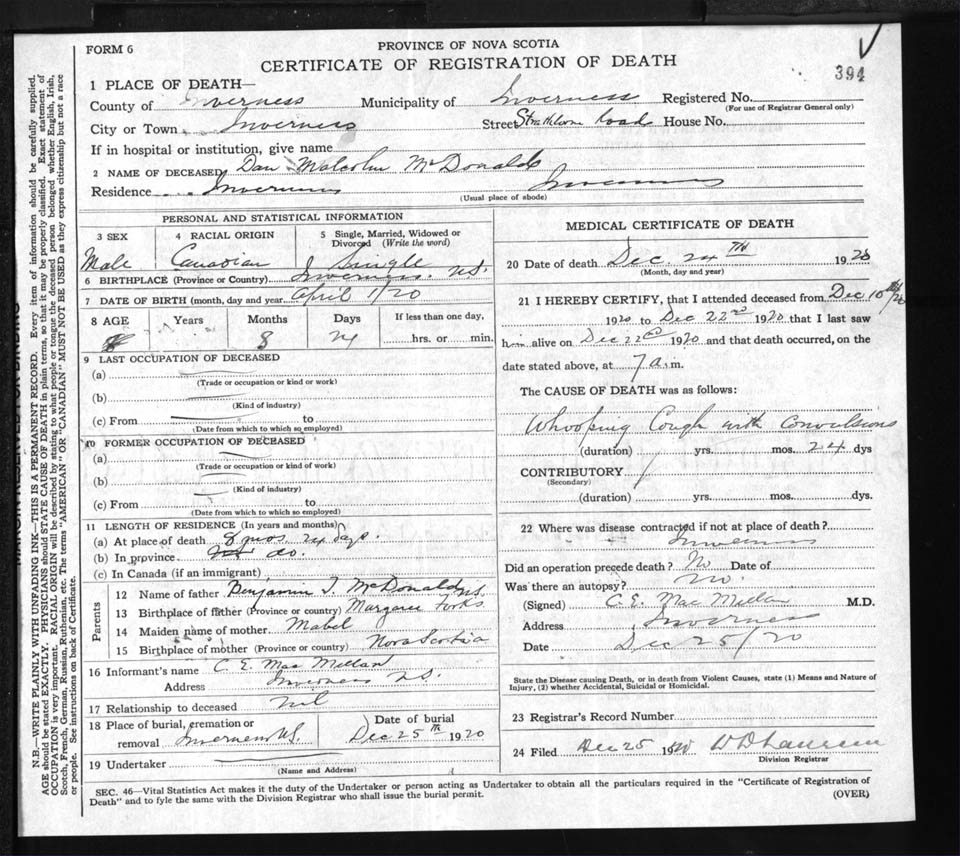 FORM 6
PROVINCE OF NOVA SCOTIA
CERTIFICATE OF REGISTRATION OF DEATH
394
1 PLACE OF DEATH—
County of Inverness Municipality of Inverness Registered No.
(For use of Registrar General only)
City or Town Inverness Street Strathlorne Road House No.
If in hospital or institution, give name
2 NAME OF DECEASED Dan Malcolm McDonald
Residence Inverness Inverness
(Usual place of abode)
PERSONAL AND STATISTICAL INFORMATION
3 SEX 4 RACIAL ORIGIN 5 Single, Married, Widowed or Divorced (Write the word)
Male Canadian Single
6 BIRTHPLACE (Province or Country) Inverness. N.S.
7 DATE OF BIRTH (month, day and year April 1/20
8 AGE Years Months Days If less than one day,
8 24 hrs. or min.
9 LAST OCCUPATION OF DECEASED
(a)
(Trade or occupation or kind or work)
(b)
(Kind of industry)
(c) From to
(Date from which to which so employed)
10 FORMER OCCUPATION OF DECEASED
(a)
(Trade or occupation or kind of work)
(b)
(Kind of industry)
(c) From to
(Date from which to which so employed)
11 LENGTH OF RESIDENCE (In years and months)
(a) At place of death 8 mos 24 days.
(b) In province do.
(c) In Canada (if an immigrant)
Parents
12 Name of father Benjamin J. McDonald
13 Birthplace of father (Province or country) Margaree Forks N.S.
14 Maiden name of mother Mabel
15 Birthplace of mother (Province or country) Nova Scotia
16 Informant's name C. E. MacMillan
Address Inverness N.S.
17 Relationship to deceased nil
18 Place of burial, cremation or removal Inverness N.S. Date of burial Dec 25th 1920
19 Undertaker
(Name and Address)
MEDICAL CERTIFICATE OF DEATH
20 Date of death Dec. 24th 1920
(Month, day and year)
21 I HEREBY CERTIFY, that I attended deceased from Dec 10th/20
1920 to Dec 22nd 1920 that I last saw
him alive on Dec 22nd 1920 and that death occurred, on the
date stated above, at 7 a.m.
The CAUSE OF DEATH was as follows:
Whooping Cough with Convulsions
(duration) yrs. mos. 24 dys
CONTRIBUTORY
(Secondary)
(duration) yrs. mos. dys.
22 Where was disease contracted if not at place of death?
Inverness
Did an operation precede death? No Date of
Was there an autopsy? No.
(Signed) C. E. MacMillan M.D.
Address Inverness
Date Dec 25/20
State the Disease causing Death, or in death from Violent Causes, state (1) Means and Nature of
Injury, (2) whether Accidental, Suicidal or Homicidal.
23 Registrar's Record Number
24 Filed Dec 25 1920
Division Registrar
SEC. 46—Vital Statistics Act makes it the duty of the Undertaker or person acting as Undertaker to obtain all the particulars required in the "Certificate of Registration of
Death" and to fyle the same with the Division Registrar who shall issue the burial permit.
(OVER)
N.B.—WRITE PLAINLY WITH UNFADING INK—THIS IS A PERMANENT RECORD. Every item of information should be carefully supplied.
AGE should be stated EXACTLY. PHYSICIANS should STATE CAUSE OF DEATH in plain terms, so that it may be properly classified. Exact statement of
OCCUPATION is very important. RACIAL ORIGIN will be described by stating to what people or tongue the deceased person belonged whether English, Irish,
Scotch, French, German, Russian, Ruthenian, etc. The terms "AMERICAN" OR "CANADIAN" MUST NOT BE USED as they express citizenship but not a race
or people. See instructions on back of Certificate.